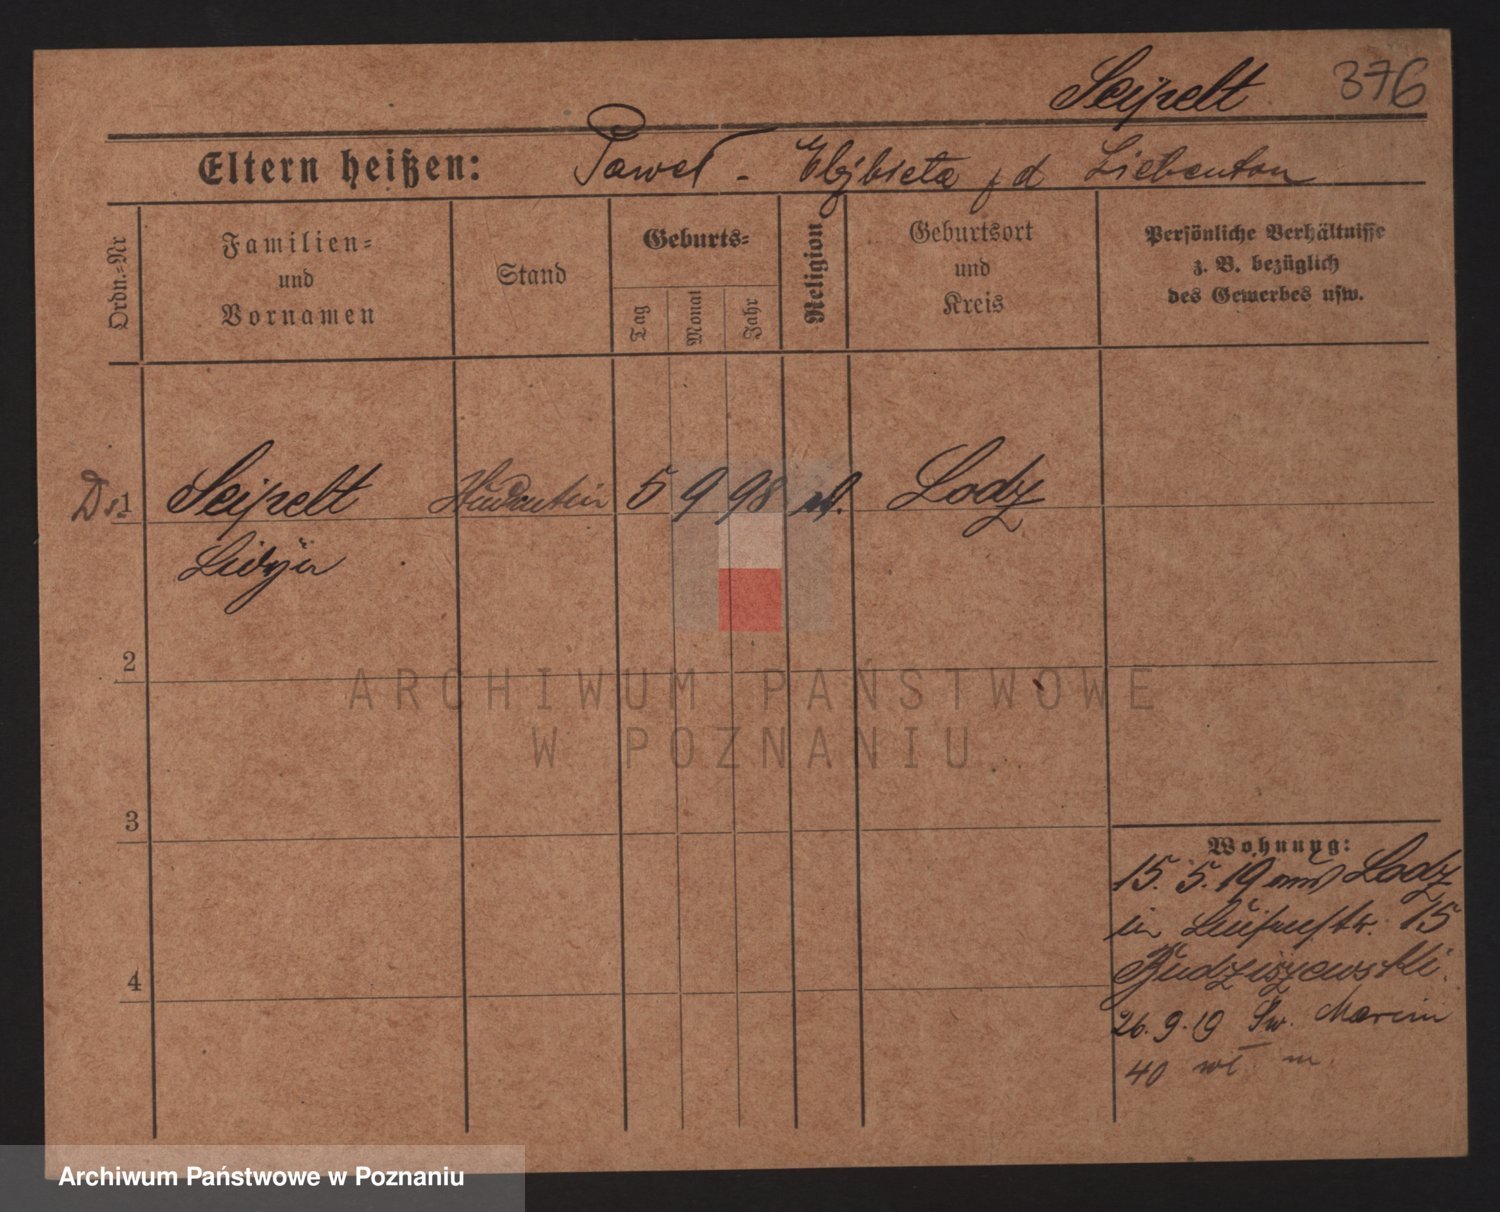 Seipelt 376
Eltern heißen: Paweł - Elżbieta z d Liebenton
Ordn.=Nr
Familien=
und
Vornamen
Stand
Geburts=
Tag
Monat
Jahr
Religion
Geburtsort
und
Kreis
Persönliche Verhältnisse
z. B. bezüglich
des Gewerbes usw.
1 Seipelt Studentin 5 9 98 Lodz
Lidya
2
3
4
Wohnung:
15. 5. 19 aus Lodz
in Luisenstr. 15
Budziszewski.
26. 9. 19 Św. Marcin
40 wł m.
ARCHIWUM PAŃSTWOWE
W POZNANIU
Archiwum Państwowe w Poznaniu